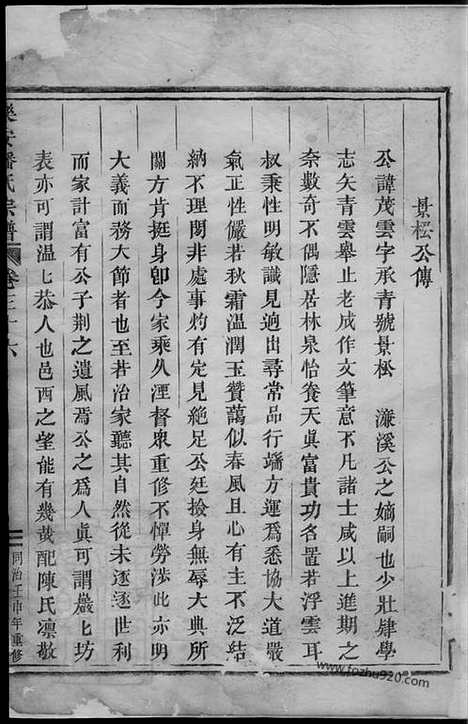 景松公傳
公諱茂雲字承青號景松 濂溪公之嫡嗣也少壯肄學
志矢青雲舉止老成作文筆意不凡諸士咸以上進期之
奈數奇不偶隱居林泉怡養天眞富貴功名置若浮雲耳
叔秉性明敏識見逈出尋常品行端方運爲悉協大道嚴
氣正性儼若秋霜温潤玉贊藹似春風且心有主不泛結
納不理閑非處事灼有定見絶足公廷撿身無辱大典所
關方肯挺身卽今家乘久湮督衆重修不憚勞涉此亦明
大義而務大節者也至若治家聽其自然從未逐逐世利
而家計富有公子荆之遺風焉公之爲人眞可謂嚴匕坊
表亦可謂温匕恭人也邑西之望能有幾哉配陳氏凛敬
潘氏宗譜 卷三十六 同治壬申年重修
www.fozhu920.com